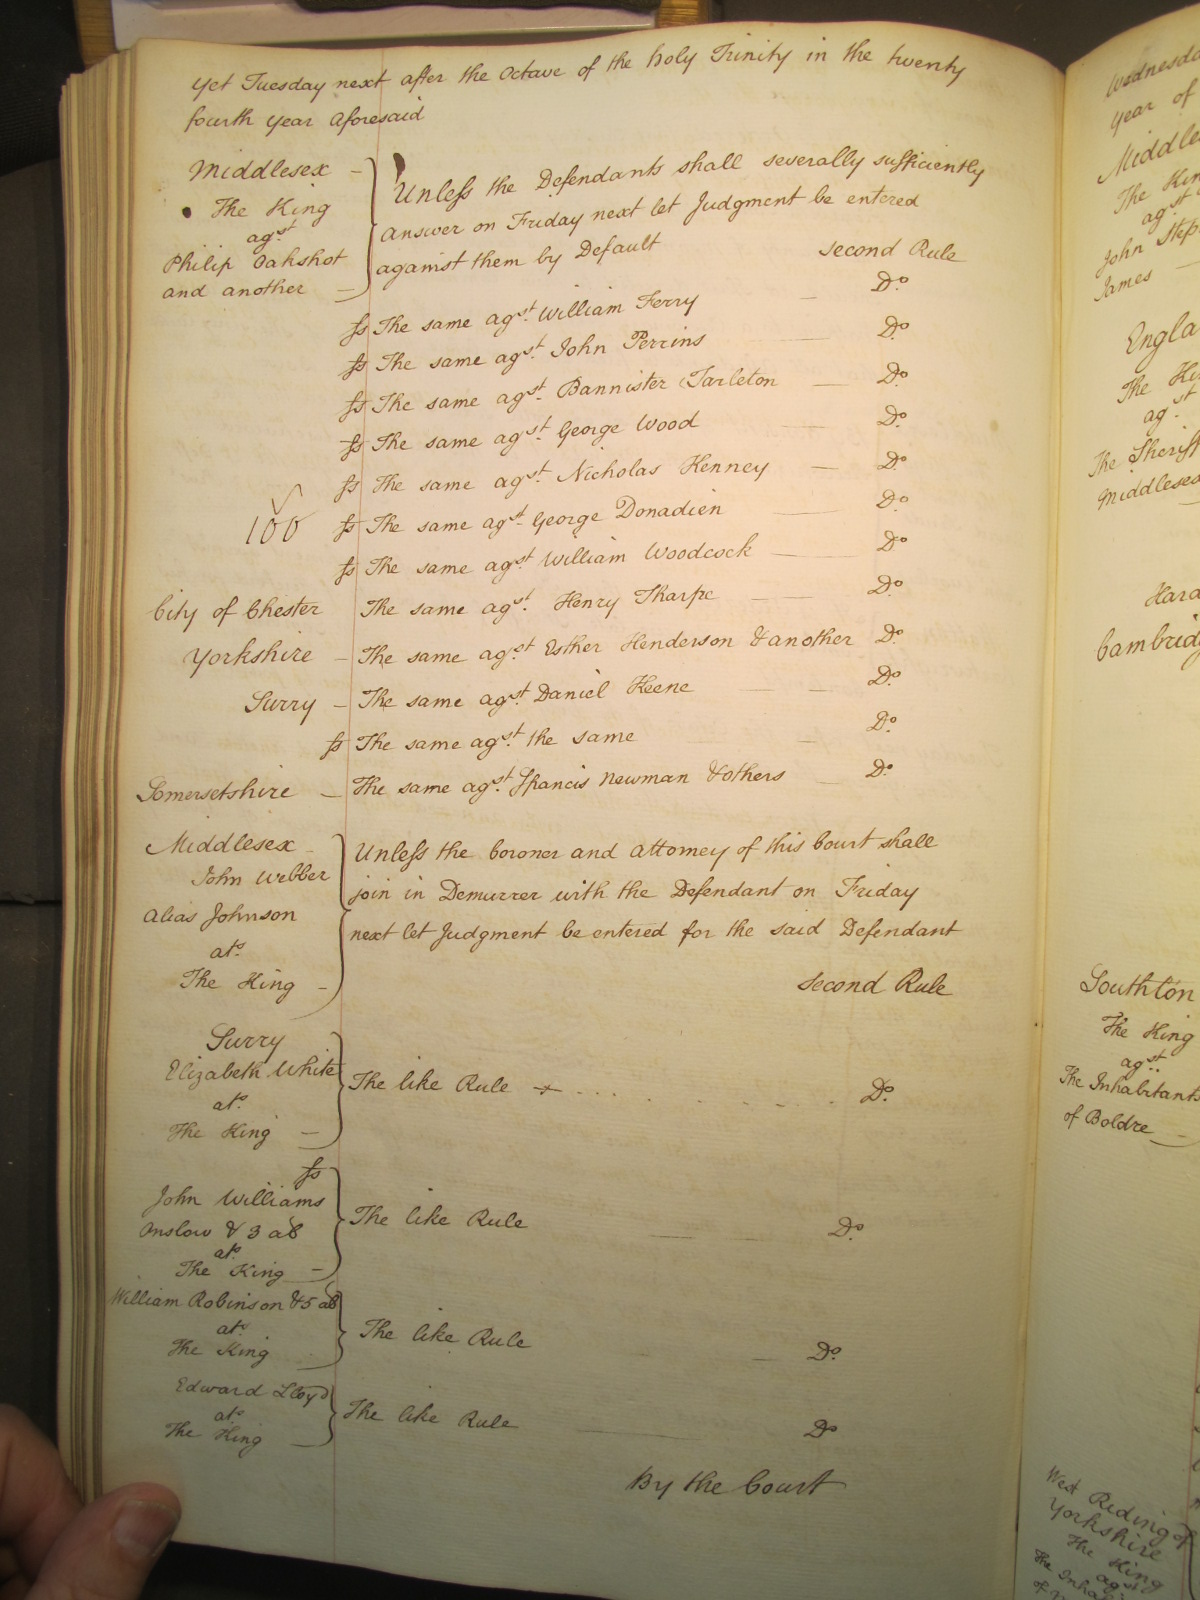 Yet Tuesday next after the Octave of the holy Trinity in the twenty
fourth year aforesaid
Middlesex -
The King
agst
Philip Oakshot
and another -
Unless the Defendants shall severally sufficiently
answer on Friday next let Judgment be entered
against them by Default second Rule
ss The same agst William Ferry - Do
ss The same agst John Perrins Do
ss The same agst Bannister Tarleton - Do
ss The same agst George Wood Do
ss The same agst Nicholas Kenney - Do
100 ss The same agst George Donadien Do
ss The same agst William Woodcock Do
City of Chester The same agst Henry Tharpe Do
Yorkshire - The same agst Esther Henderson & another Do
Surry - The same agst Daniel Keene Do
ss The same agst the same Do
Somersetshire - The same agst Francis Newman & others Do
Middlesex
John Webber
alias Johnson
ats
The King -
Unless the Coroner and attorney of this Court shall
join in Demurrer with the Defendant on Friday
next let Judgment be entered for the said Defendant
second Rule
Surry
Elizabeth White
ats
The King -
The like Rule Do
ss
John Williams
Onslow & 3 als
ats
The King -
The like Rule Do
William Robinson & 5 als
ats
The King
The like Rule Do
Edward Lloyd
ats
The King
The like Rule Do
By the Court
Wednesda
year of
Middle
The Kin
agst
John Step
James
Engla
The Ki
agst
The Sheriff
Middlesex
Hara
Cambridg
Southton
The King
agst
The Inhabitants
of Boldre
West Riding of
Yorkshire
The King
agst
The Inha